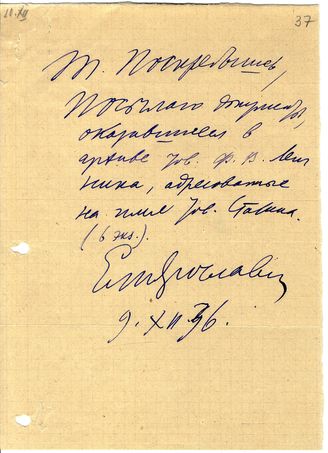 11.XII
37
т. Поскребышев,
Посылаю документы,
оказавшиеся в
архиве тов. Ф. В. Ленг
ника, адресованные
на имя тов. Сталина.
(6 экз.).
Ем Ярославск
9. XII 36.